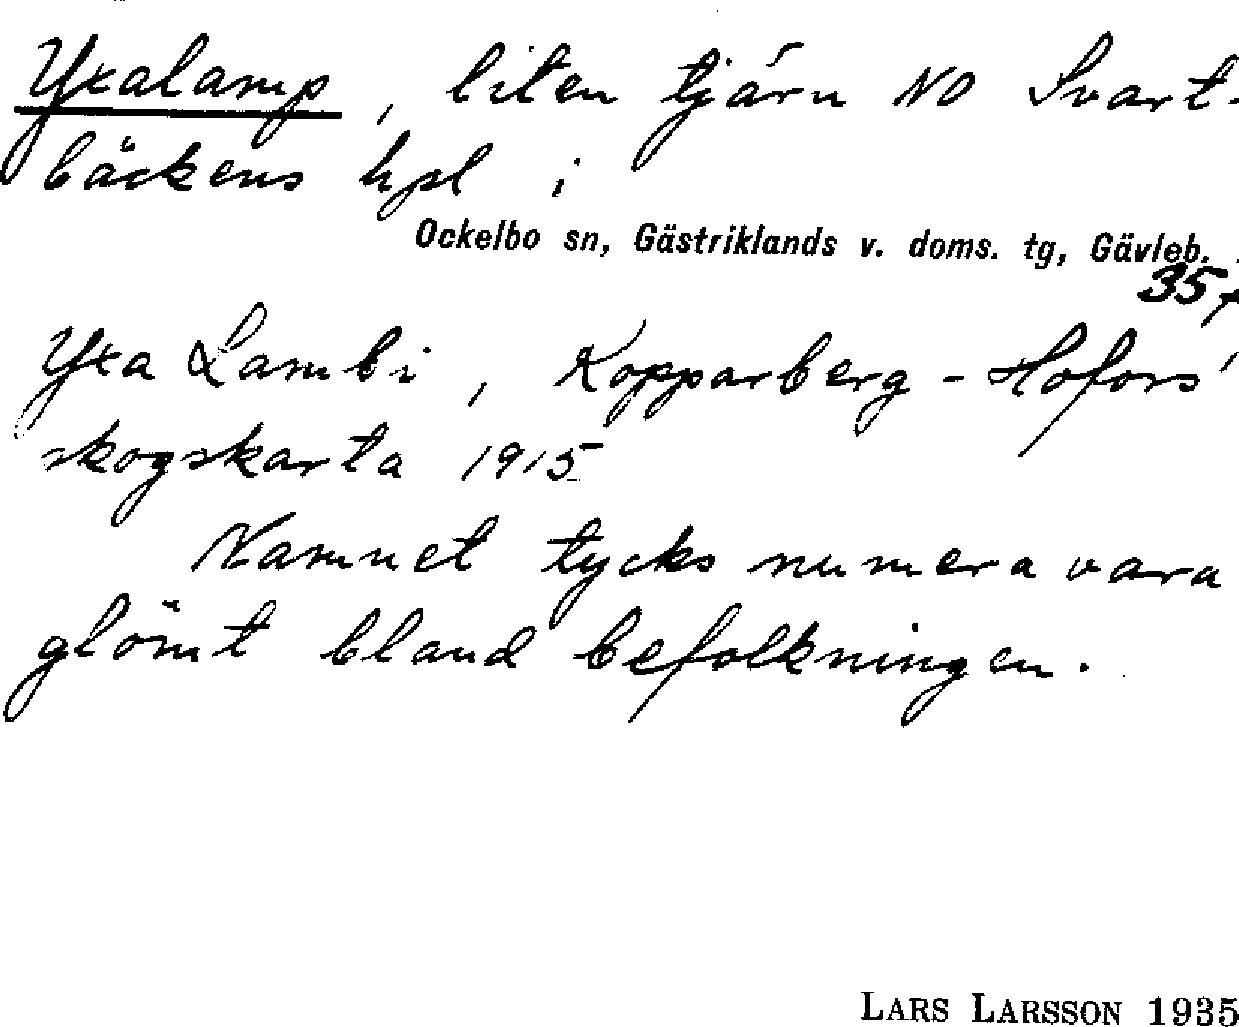 Yxalamp, liten tjärn NO Svart-
bäckens hpl i
Ockelbo sn, Gästriklands v. doms. tg, Gävleb.
35
Yxa Lambi, Kopparberg-Hofors'
skogskarta 1915
Namnet tycks numera vara
glömt bland befolkningen.
LARS LARSSON 1935